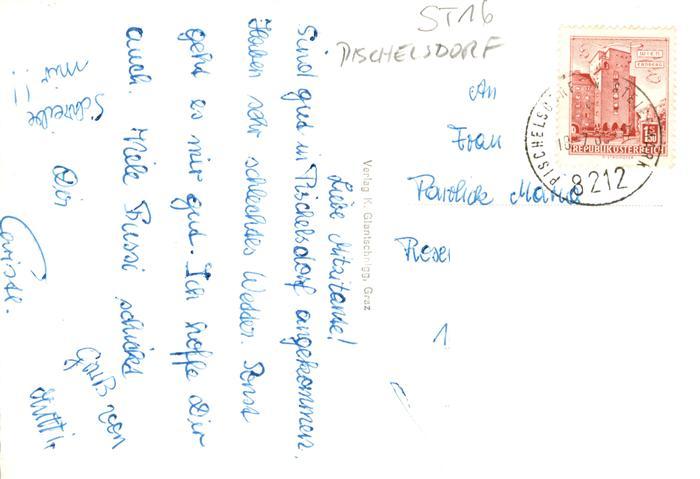 ST16
PISCHELSDORF
WIEN
ERDBERG
1.50
REPUBLIK ÖSTERREICH
8212
An
Frau
Pavlick Maria
1
Verlag K. Glantschnigg, Graz
Liebe Mitzitante!
Sind gut in Pischelsdorf angekommen.
Haben sehr schlechtes Wetter. Sonst
geht es mir gut. Ich hoffe Dir
auch. Viele Bussi schickt
Dir
Schreibe
mir!!
Gruß von
Mutti